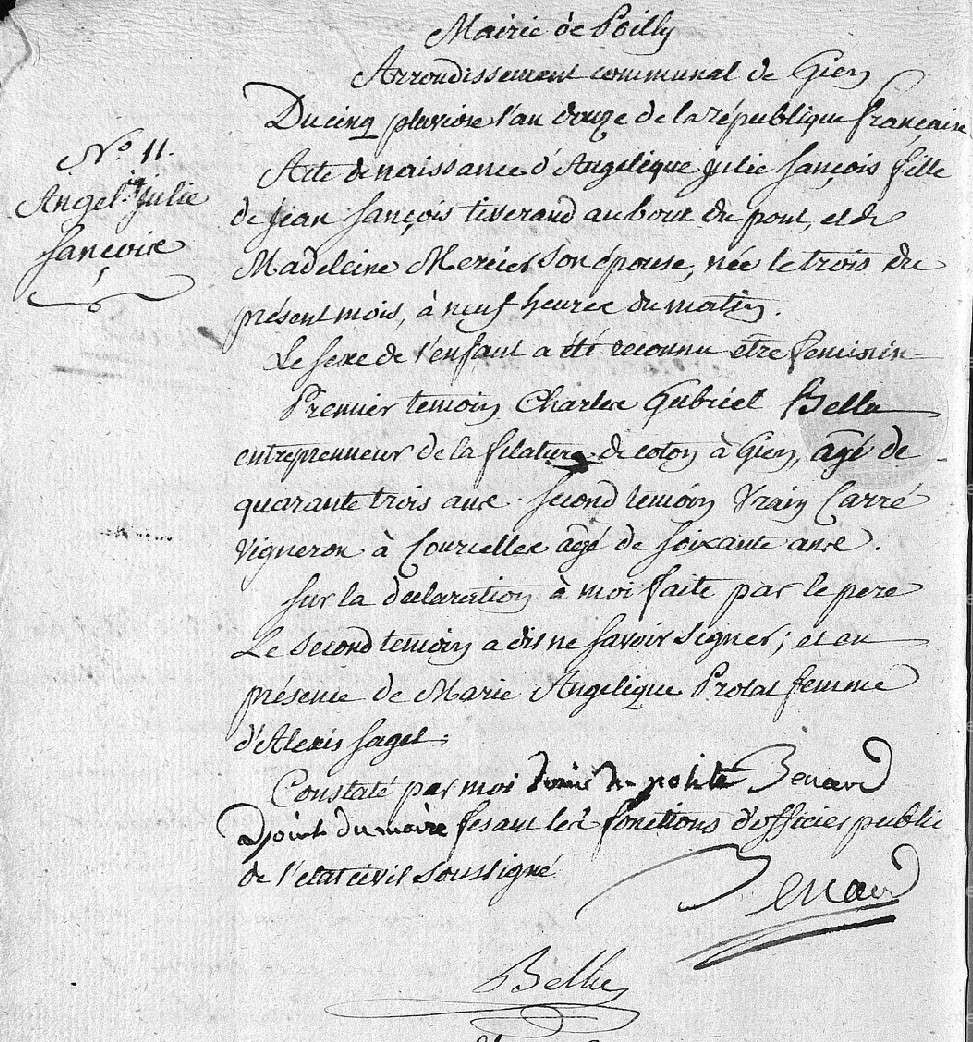 Mairie de Poilly
Arrondissement communal de Gien
Du cinq pluviose l'an douze de la république française
N.° 11.
Angel.que julie
sançoise
Acte de naissance d'Angelique julie sançois fille
de jean sançois tisserand au bout du pont, et de
Madeleine Mercier son épouse, née le trois du
présent mois, à neuf heures du matin.
Le sexe de l'enfant a été reconnu être feminin
Premier temoin Charles Gabriel Bella
entreprenneur de la filature de coton à Gien, agé de
quarante trois ans. second temoin Vrain Carré
Vigneron à Courcelles agé de soixante ans.
sur la declaration à moi faite par le pere
Le second temoin a dis ne savoir signer; et en
présence de Marie Angelique Prolat femme
d'Alexis saget.
Constaté par moi Benard
adjoint du maire fesant les fonctions d'officier public
de l'etat civil soussigné
Benard
Bella